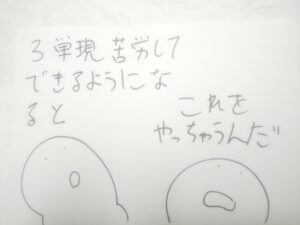 3単現苦労して
できるようにな
ると
これを
やっちゃうんだ